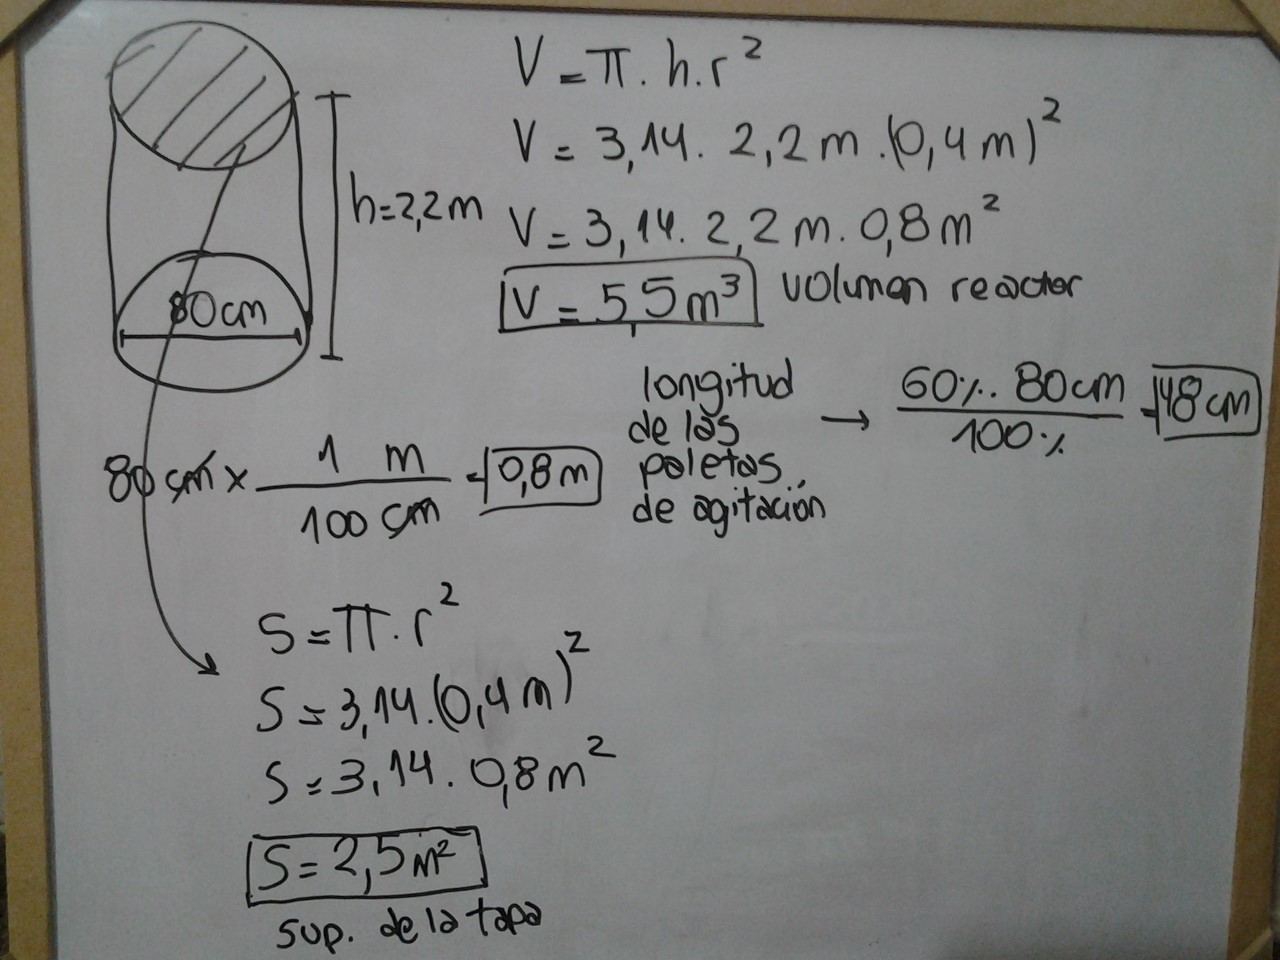 V = π . h . r²
V = 3,14 . 2,2 m . (0,4 m)²
h=2,2m
V = 3,14 . 2,2 m . 0,8 m²
V = 5,5 m³ volumen reactor
80cm
longitud
de las
paletas
de agitación
→ 60% . 80cm / 100% = 48 cm
80 cm x 1 m / 100 cm = 0,8 m
S = π . r²
S = 3,14 . (0,4 m)²
S = 3,14 . 0,8 m²
S = 2,5 m²
sup. de la tapa